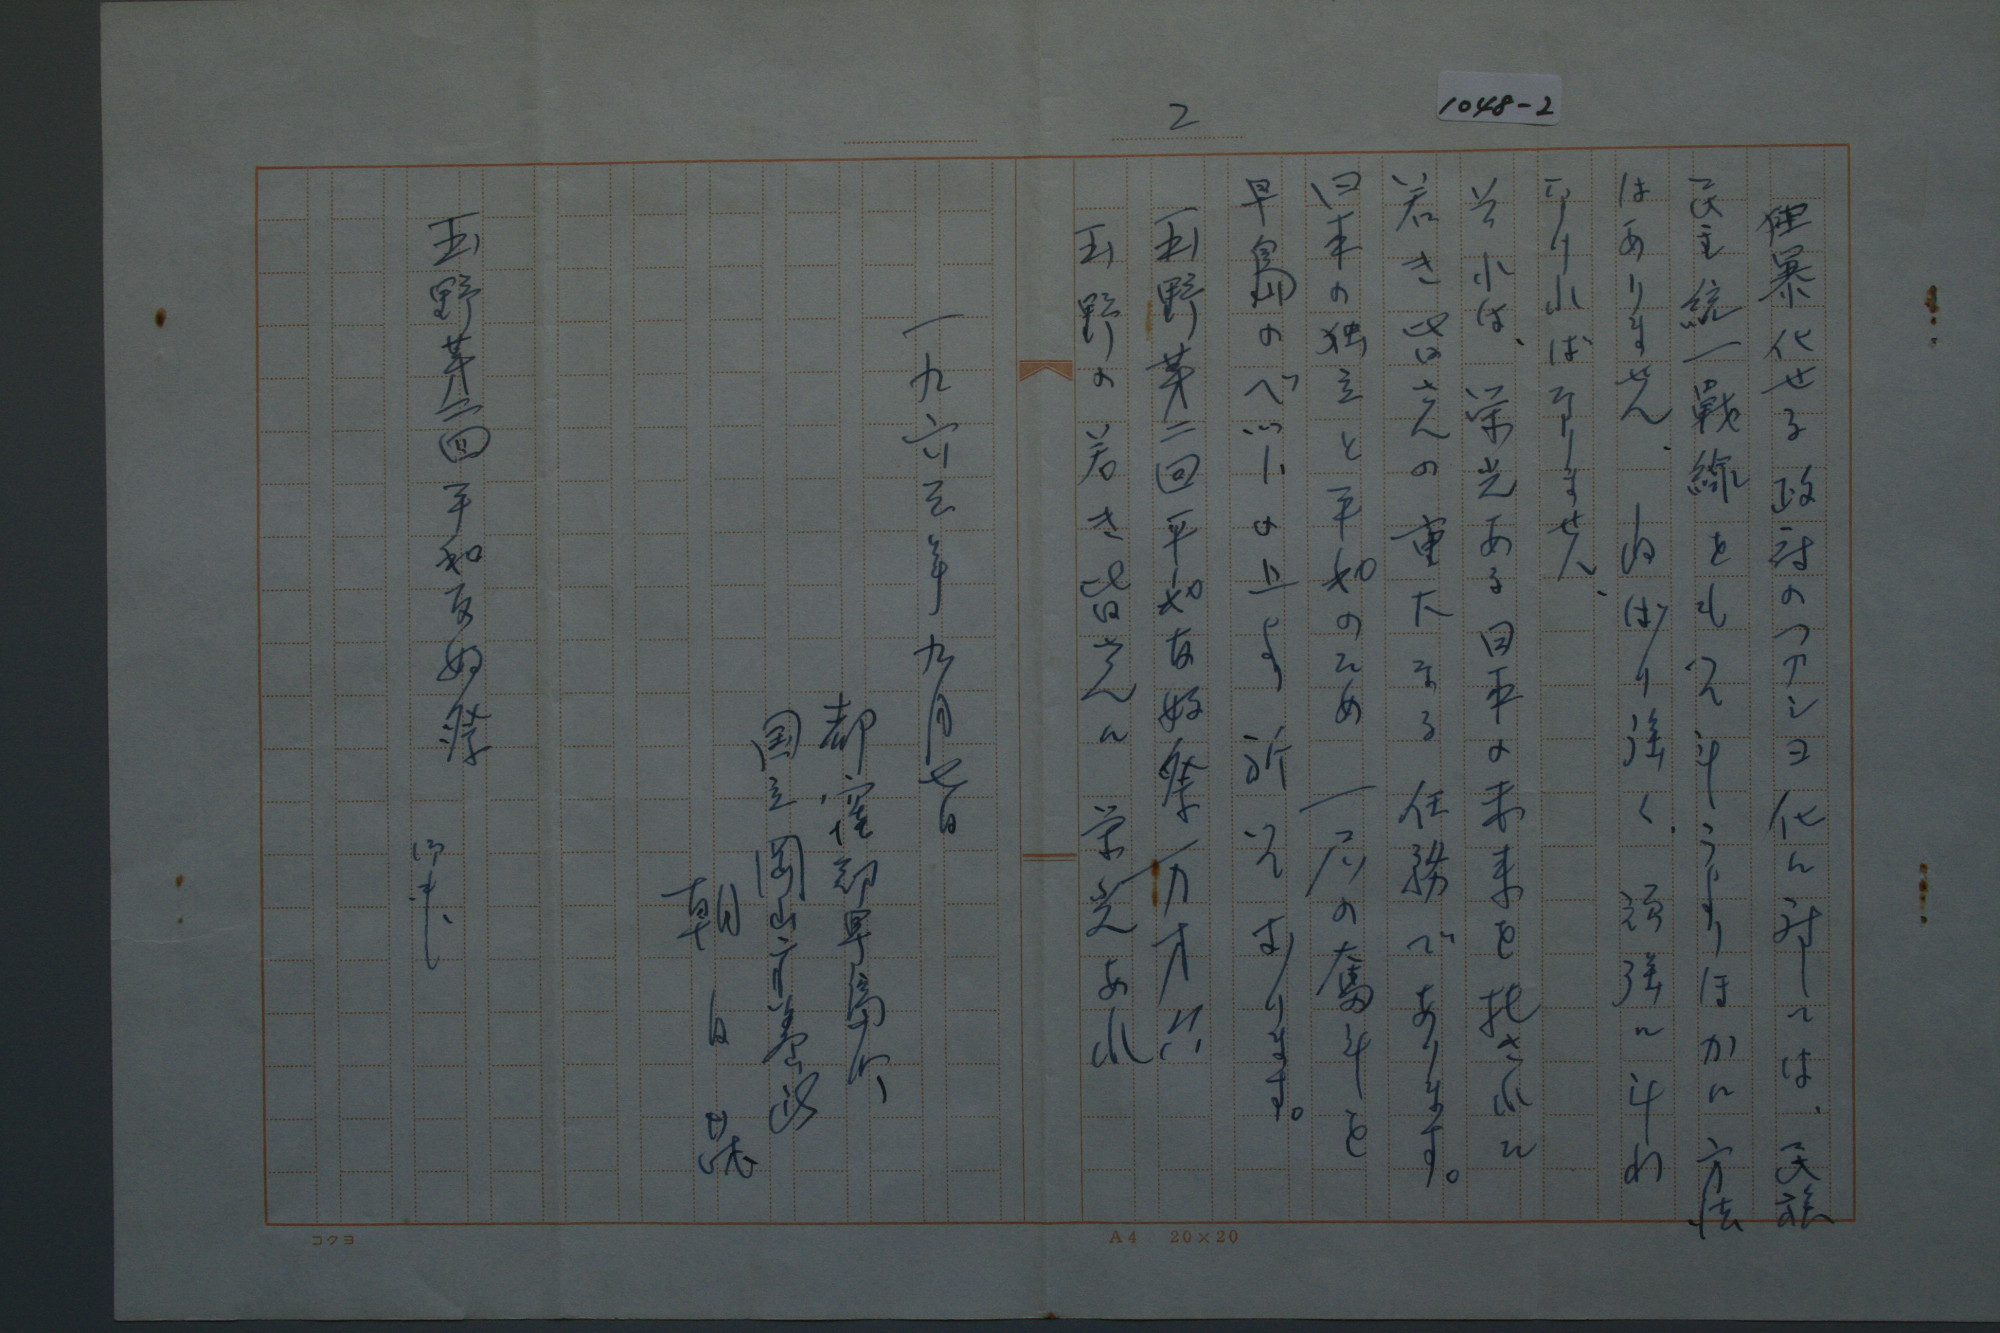 1048-2
2
狂暴化せる政府のファシヨ化に対しては、民族
民主統一戦線をもつて斗うよりほかに方法
はありません、ねばり強く、頑強に斗わ
なければなりません、
それは、栄光ある日本の未来を托された
若き皆さんの重大なる任務であります。
日本の独立と平和のため一層の奮斗を
早島のベットの上より祈つております。
玉野第二回平和友好祭万才!!
玉野の若き皆さんに栄光あれ
一九六三年九月七日
都窪郡早島町
国立岡山療養所
朝日茂
玉野第二回平和友好祭
御中
コクヨ
A4 20×20